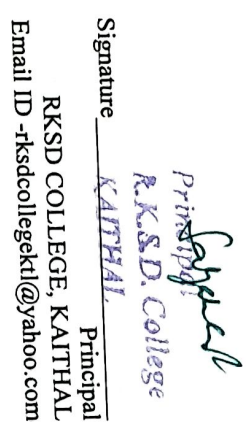 Principal
R.K.S.D. College
Signature KAITHAL
Principal
RKSD COLLEGE, KAITHAL
Email ID -rksdcollegektl@yahoo.com